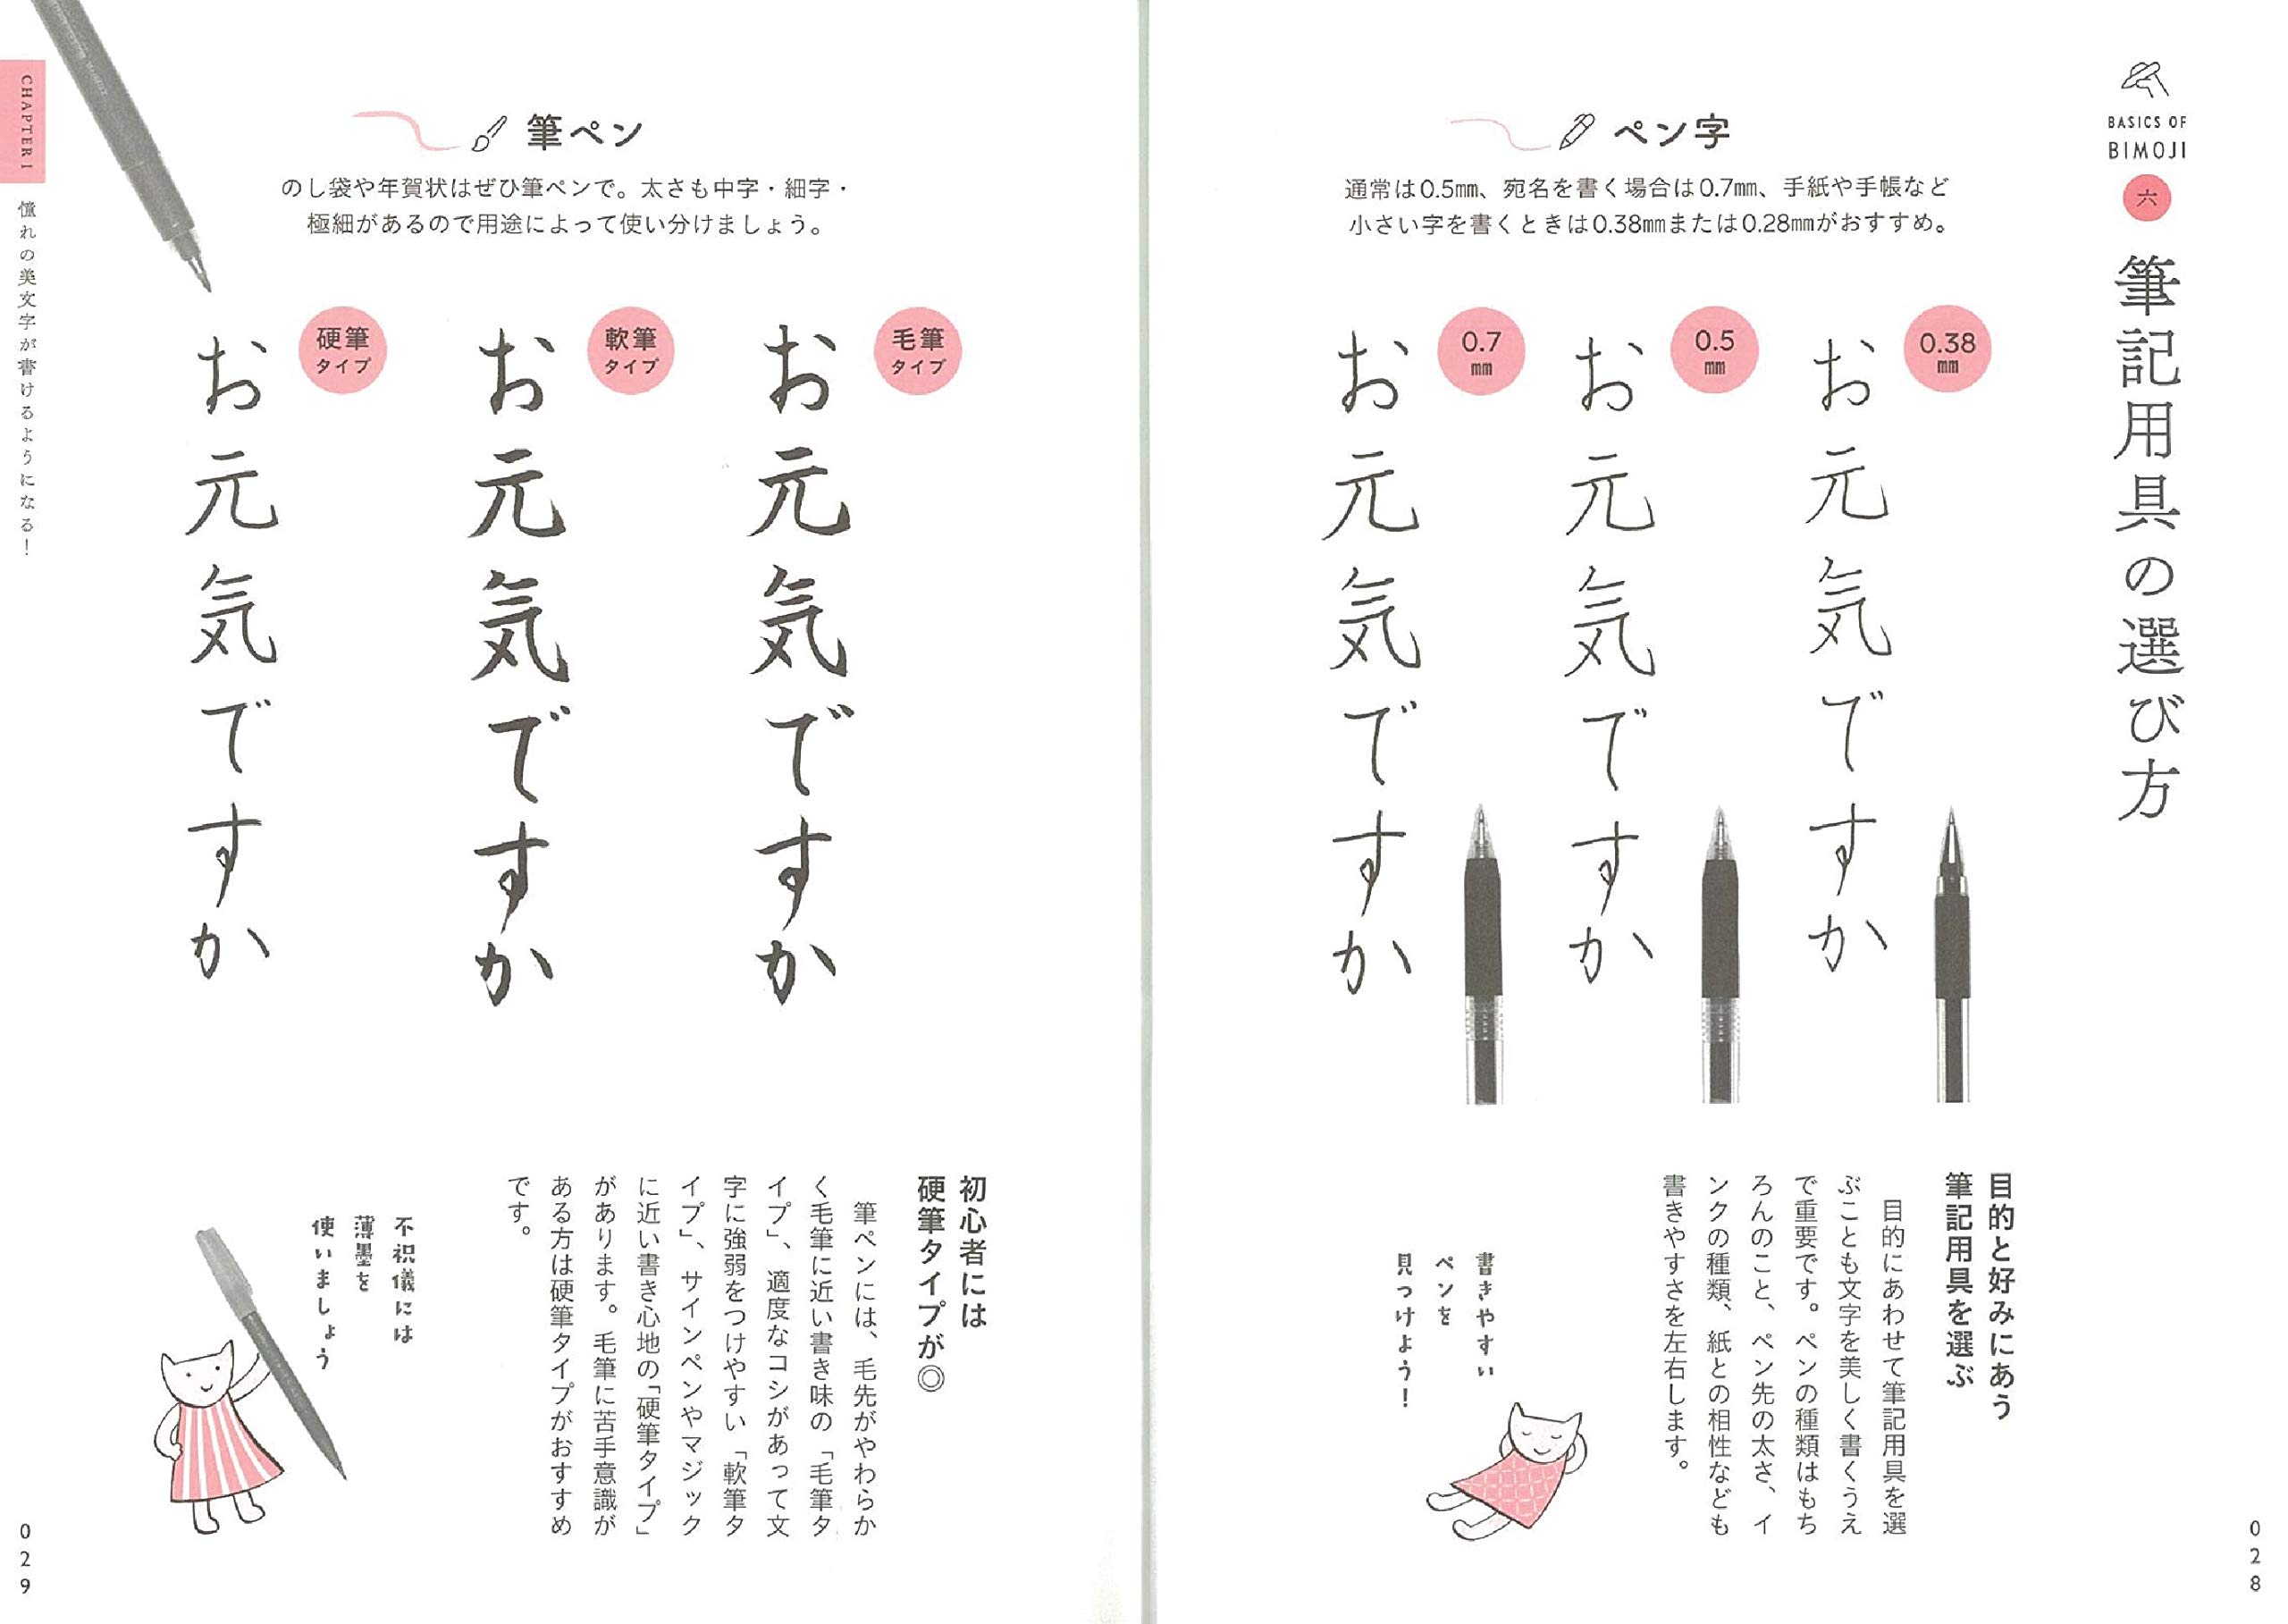 BASICS OF
BIMOJI
六
筆記用具の選び方
ペン字
通常は0.5㎜、宛名を書く場合は0.7㎜、手紙や手帳など
小さい字を書くときは0.38㎜または0.28㎜がおすすめ。
0.38
㎜
お元気ですか
0.5
㎜
お元気ですか
0.7
㎜
お元気ですか
目的と好みにあう
筆記用具を選ぶ
目的にあわせて筆記用具を選
ぶことも文字を美しく書くうえ
で重要です。ペンの種類はもち
ろんのこと、ペン先の太さ、イ
ンクの種類、紙との相性なども
書きやすさを左右します。
書きやすい
ペンを
見つけよう！
028
筆ペン
のし袋や年賀状はぜひ筆ペンで。太さも中字・細字・
極細があるので用途によって使い分けましょう。
毛筆
タイプ
お元気ですか
軟筆
タイプ
お元気ですか
硬筆
タイプ
お元気ですか
初心者には
硬筆タイプが◎
筆ペンには、毛先がやわらか
く毛筆に近い書き味の「毛筆タ
イプ」、適度なコシがあって文
字に強弱をつけやすい「軟筆タ
イプ」、サインペンやマジック
に近い書き心地の「硬筆タイプ」
があります。毛筆に苦手意識が
ある方は硬筆タイプがおすすめ
です。
不祝儀には
薄墨を
使いましょう
CHAPTER 1
憧れの美文字が書けるようになる！
029